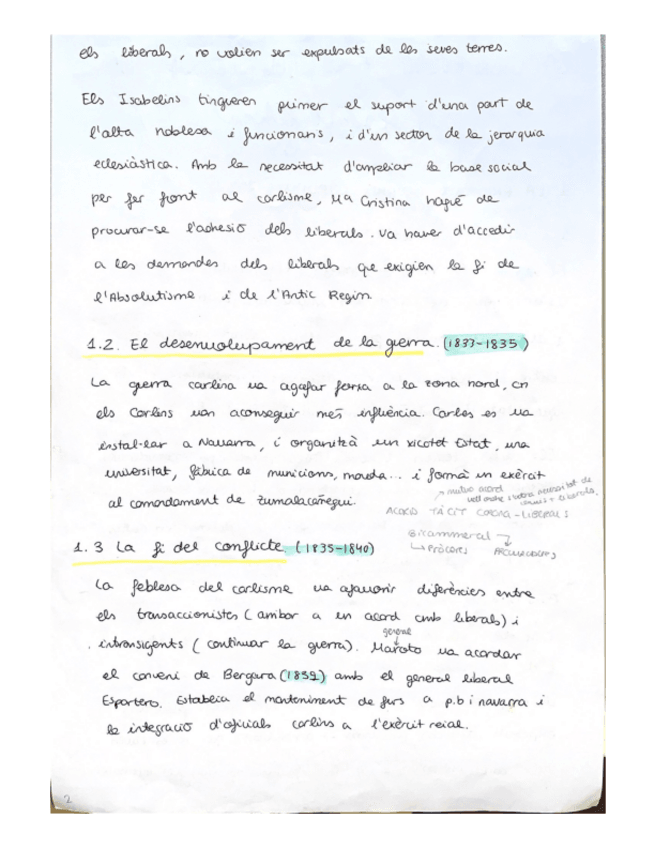 els liberals, no volien ser expulsats de les seves terres.
Els Isabelins tingueren primer el suport d'una part de
l'alta noblesa i funcionaris, i d'un sector de la jerarquia
eclesiàstica. Amb la necessitat d'ampliar la base social
per fer front al carlisme, Mª Cristina hagué de
procurar-se l'adhesió dels liberals. Va haver d'accedir
a les demandes dels liberals que exigien la fi de
l'Absolutisme i de l'Antic Regim
1.2. El desenvolupament de la gierra. (1833-1835)
La guerra carlina va agafar força a la zona nord, on
els Carlins van aconseguir més influència. Carles es va
instal·lar a Navarra, i organitzà un xicotet Estat, una
universitat, fàbrica de municions, moneda... i formà un exèrcit
al comandament de Zumalacáñegui.
mutuo acord
ACORD TÀCIT CORONA-LIBERALS
Bicammeral
PRÒCERS PROCURADORS
1.3 La fi del conflicte (1835-1840)
La feblesa del carlisme va afavorir diferències entre
els transaccionistes (arribar a un acord amb liberals) i
intransigents (continuar la guerra). Maroto va acordar
general
el conveni de Bergara (1839) amb el general liberal
Esportero. Establia el manteniment de furs a p.b i navarra i
la integració d'oficials carlins a l'exèrcit reial.
2